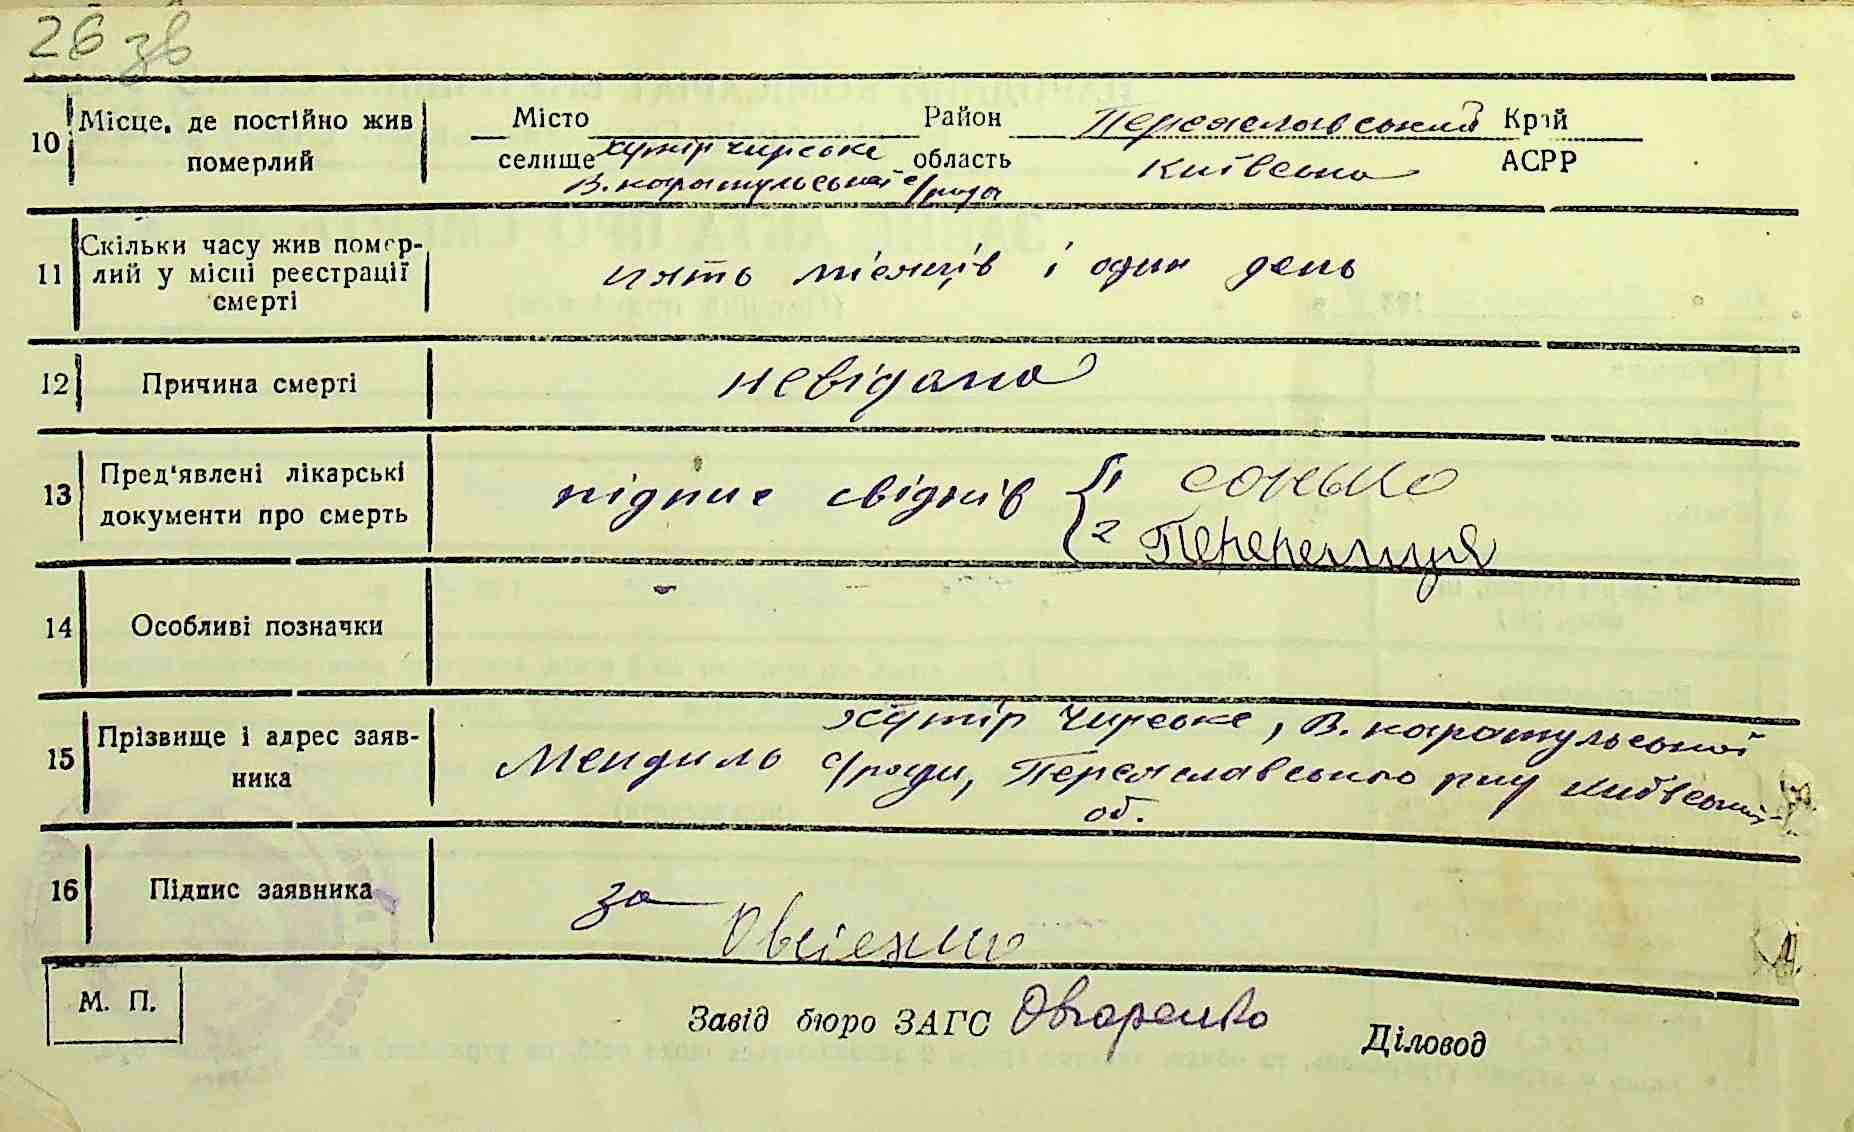 26 зв
10 Місце, де постійно жив померлий Місто Район Переяславський Край
селище хутір Чирське область Київська АСРР
В. каратульської с/рада
11 Скільки часу жив померлий у місці реєстрації смерті пять місяців і один день
12 Причина смерті невідома
13 Пред'явлені лікарські документи про смерть підпис свідків 1 Сонько
2 Перепелиця
14 Особливі позначки
15 Прізвище і адрес заявника хутір Чирське, В. каратульської
Мендиль с/ради, Переяславського р-ну Київської
об.
16 Підпис заявника за
Овсієнко
М. П.
Завід бюро ЗАГС Овчаренко Діловод